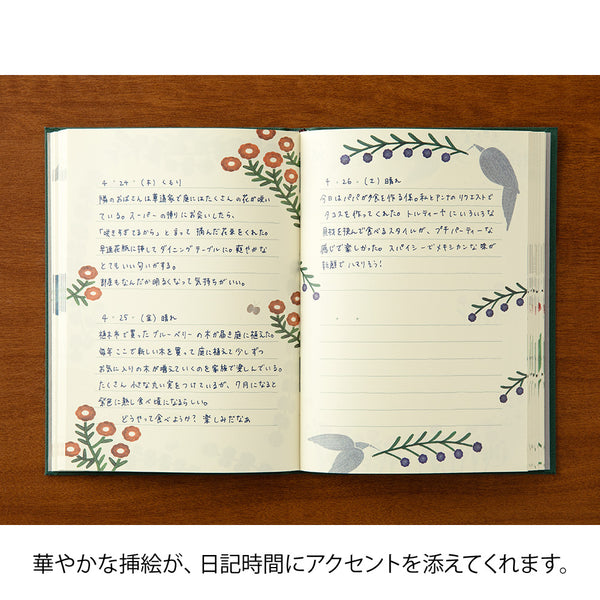 4・24・(木) くもり
隣のおばさんは華道家で庭にはたくさんの花が咲い
ている。スーパーの帰りにお会いしたら、
「咲きすぎてるから」と言って 摘んだ花束をくれた。
早速花瓶に挿してダイニングテーブルに。爽やかな
とてもいい匂いがする。
部屋もなんだか明るくなって気持ちがいい。
4・25・(金) 晴れ
植木市で買ったブルーベリーの木が届き庭に植えた。
毎年ここで新しい木を買って庭に植えて少しずつ
お気に入りの木が増えていくのを家族で楽しんでいる。
たくさん小さな丸い実をつけているが、7月になると
紫色に熟し食べ頃になるらしい。
どうやって食べようか? 楽しみだなぁ
4・26・(土) 晴れ
今日はパパが夕食を作る係。私とアンナのリクエストで
タコスを作ってくれた。トルティーヤにいろいろな
具材を挟んで食べるスタイルが、プチパーティーな
感じで楽しかった。スパイシーでメキシカンな味が
新鮮でハマりそう!
華やかな挿絵が、日記時間にアクセントを添えてくれます。